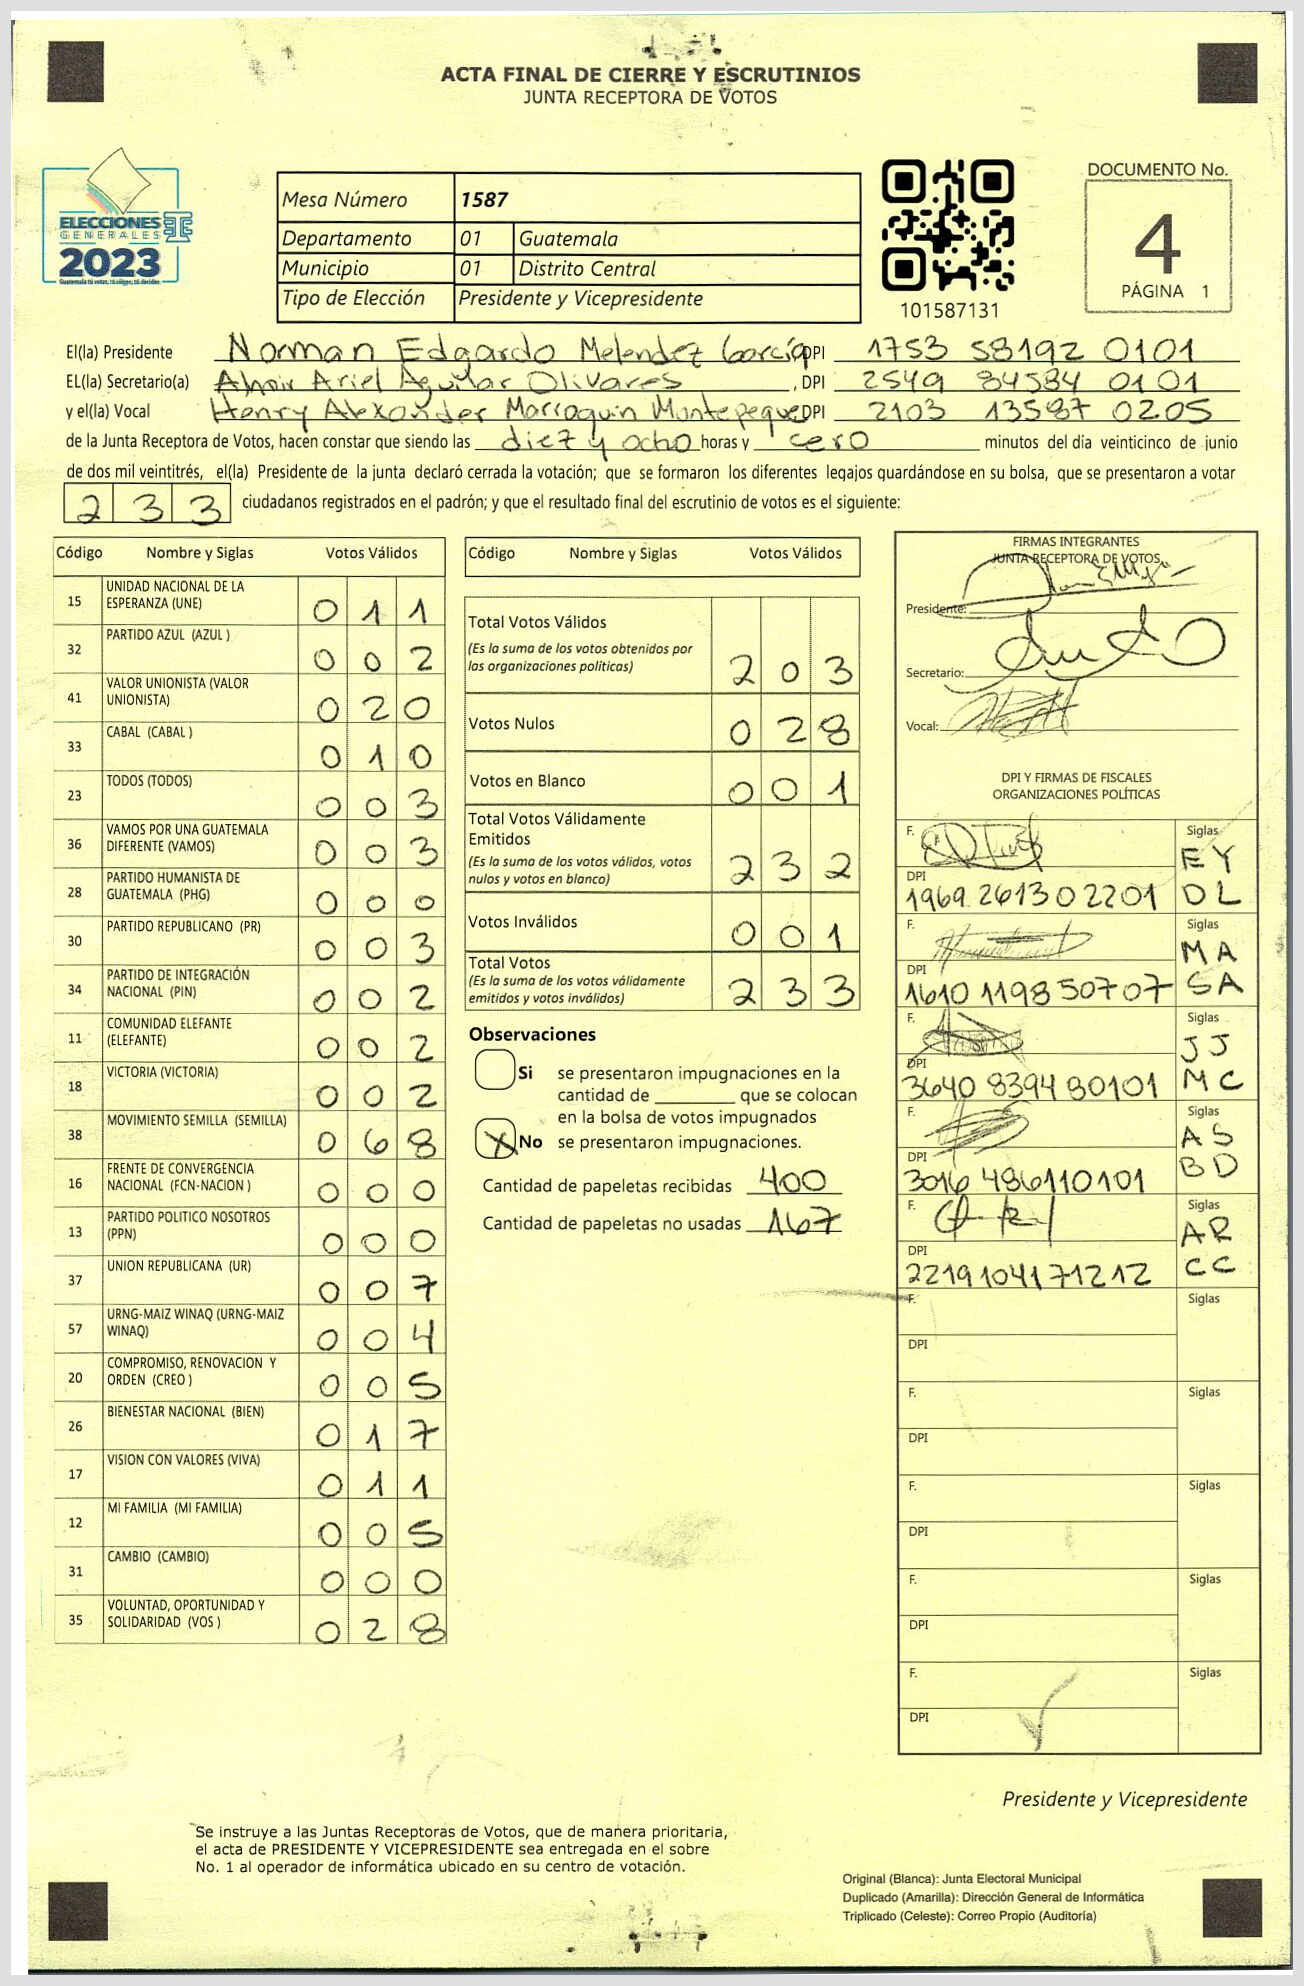 ACTA FINAL DE CIERRE Y ESCRUTINIOS
JUNTA RECEPTORA DE VOTOS
ELECCIONES
GENERALES
2023
Guatemala tú votas, tú eliges, tú decides
Mesa Número 1587
Departamento 01 Guatemala
Municipio 01 Distrito Central
Tipo de Elección Presidente y Vicepresidente
101587131
DOCUMENTO No.
4
PÁGINA 1
El(la) Presidente Norman Edgardo Melendez García DPI 1753 58192 0101
EL(la) Secretario(a) Ariel Aguilar Olivares , DPI 2549 84584 0101
y el(la) Vocal Henry Alexander Marroquin Montepeque DPI 2103 13587 0205
de la Junta Receptora de Votos, hacen constar que siendo las diez y ocho horas y cero minutos del día veinticinco de junio
de dos mil veintitrés, el(la) Presidente de la junta declaró cerrada la votación; que se formaron los diferentes legajos guardándose en su bolsa, que se presentaron a votar
233 ciudadanos registrados en el padrón; y que el resultado final del escrutinio de votos es el siguiente:
Código Nombre y Siglas Votos Válidos
15 UNIDAD NACIONAL DE LA ESPERANZA (UNE) 011
32 PARTIDO AZUL (AZUL ) 002
41 VALOR UNIONISTA (VALOR UNIONISTA) 020
33 CABAL (CABAL ) 010
23 TODOS (TODOS) 003
36 VAMOS POR UNA GUATEMALA DIFERENTE (VAMOS) 003
28 PARTIDO HUMANISTA DE GUATEMALA (PHG) 000
30 PARTIDO REPUBLICANO (PR) 003
34 PARTIDO DE INTEGRACIÓN NACIONAL (PIN) 002
11 COMUNIDAD ELEFANTE (ELEFANTE) 002
18 VICTORIA (VICTORIA) 002
38 MOVIMIENTO SEMILLA (SEMILLA) 068
16 FRENTE DE CONVERGENCIA NACIONAL (FCN-NACION ) 000
13 PARTIDO POLITICO NOSOTROS (PPN) 000
37 UNION REPUBLICANA (UR) 007
57 URNG-MAIZ WINAQ (URNG-MAIZ WINAQ) 004
20 COMPROMISO, RENOVACION Y ORDEN (CREO ) 005
26 BIENESTAR NACIONAL (BIEN) 017
17 VISION CON VALORES (VIVA) 011
12 MI FAMILIA (MI FAMILIA) 005
31 CAMBIO (CAMBIO) 000
35 VOLUNTAD, OPORTUNIDAD Y SOLIDARIDAD (VOS ) 028
Código Nombre y Siglas Votos Válidos
Total Votos Válidos
(Es la suma de los votos obtenidos por
las organizaciones políticas) 203
Votos Nulos 028
Votos en Blanco 001
Total Votos Válidamente
Emitidos
(Es la suma de los votos válidos, votos
nulos y votos en blanco) 232
Votos Inválidos 001
Total Votos
(Es la suma de los votos válidamente
emitidos y votos inválidos) 233
Observaciones
Si se presentaron impugnaciones en la
cantidad de ________ que se colocan
en la bolsa de votos impugnados
X No se presentaron impugnaciones.
Cantidad de papeletas recibidas 400
Cantidad de papeletas no usadas 167
FIRMAS INTEGRANTES
JUNTA RECEPTORA DE VOTOS
Presidente:
Secretario:
Vocal:
DPI Y FIRMAS DE FISCALES
ORGANIZACIONES POLÍTICAS
F. Siglas
EY
DPI
1969 26130 2201 DL
F. Siglas
MA
DPI
1610 11985 0707 SA
F. Siglas
JJ
DPI
3640 83948 0101 MC
F. Siglas
AS
DPI BD
3016 48611 0101
F. Siglas
AR
DPI
2219 10417 1212 CC
F. Siglas
DPI
F. Siglas
DPI
F. Siglas
DPI
F. Siglas
DPI
F. Siglas
DPI
Presidente y Vicepresidente
Se instruye a las Juntas Receptoras de Votos, que de manera prioritaria,
el acta de PRESIDENTE Y VICEPRESIDENTE sea entregada en el sobre
No. 1 al operador de informática ubicado en su centro de votación.
Original (Blanca): Junta Electoral Municipal
Duplicado (Amarilla): Dirección General de Informática
Triplicado (Celeste): Correo Propio (Auditoría)